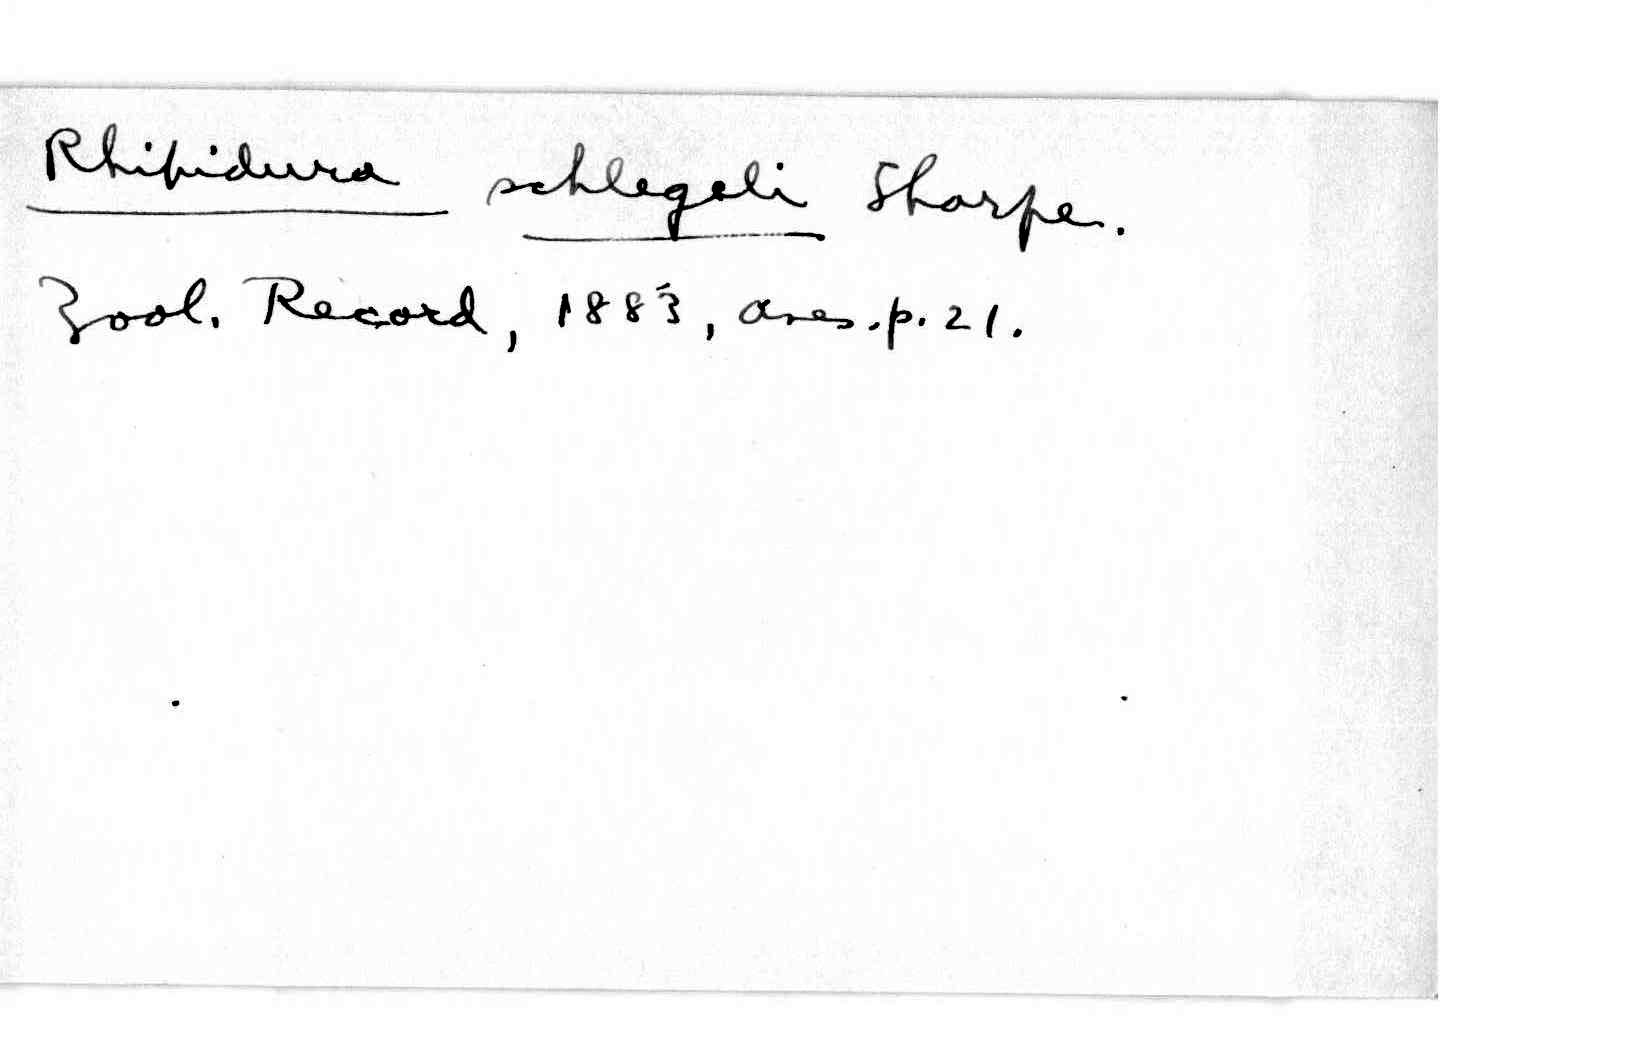 Rhipidura schlegeli Sharpe.
Zool. Record, 1883, Aves. p. 21.